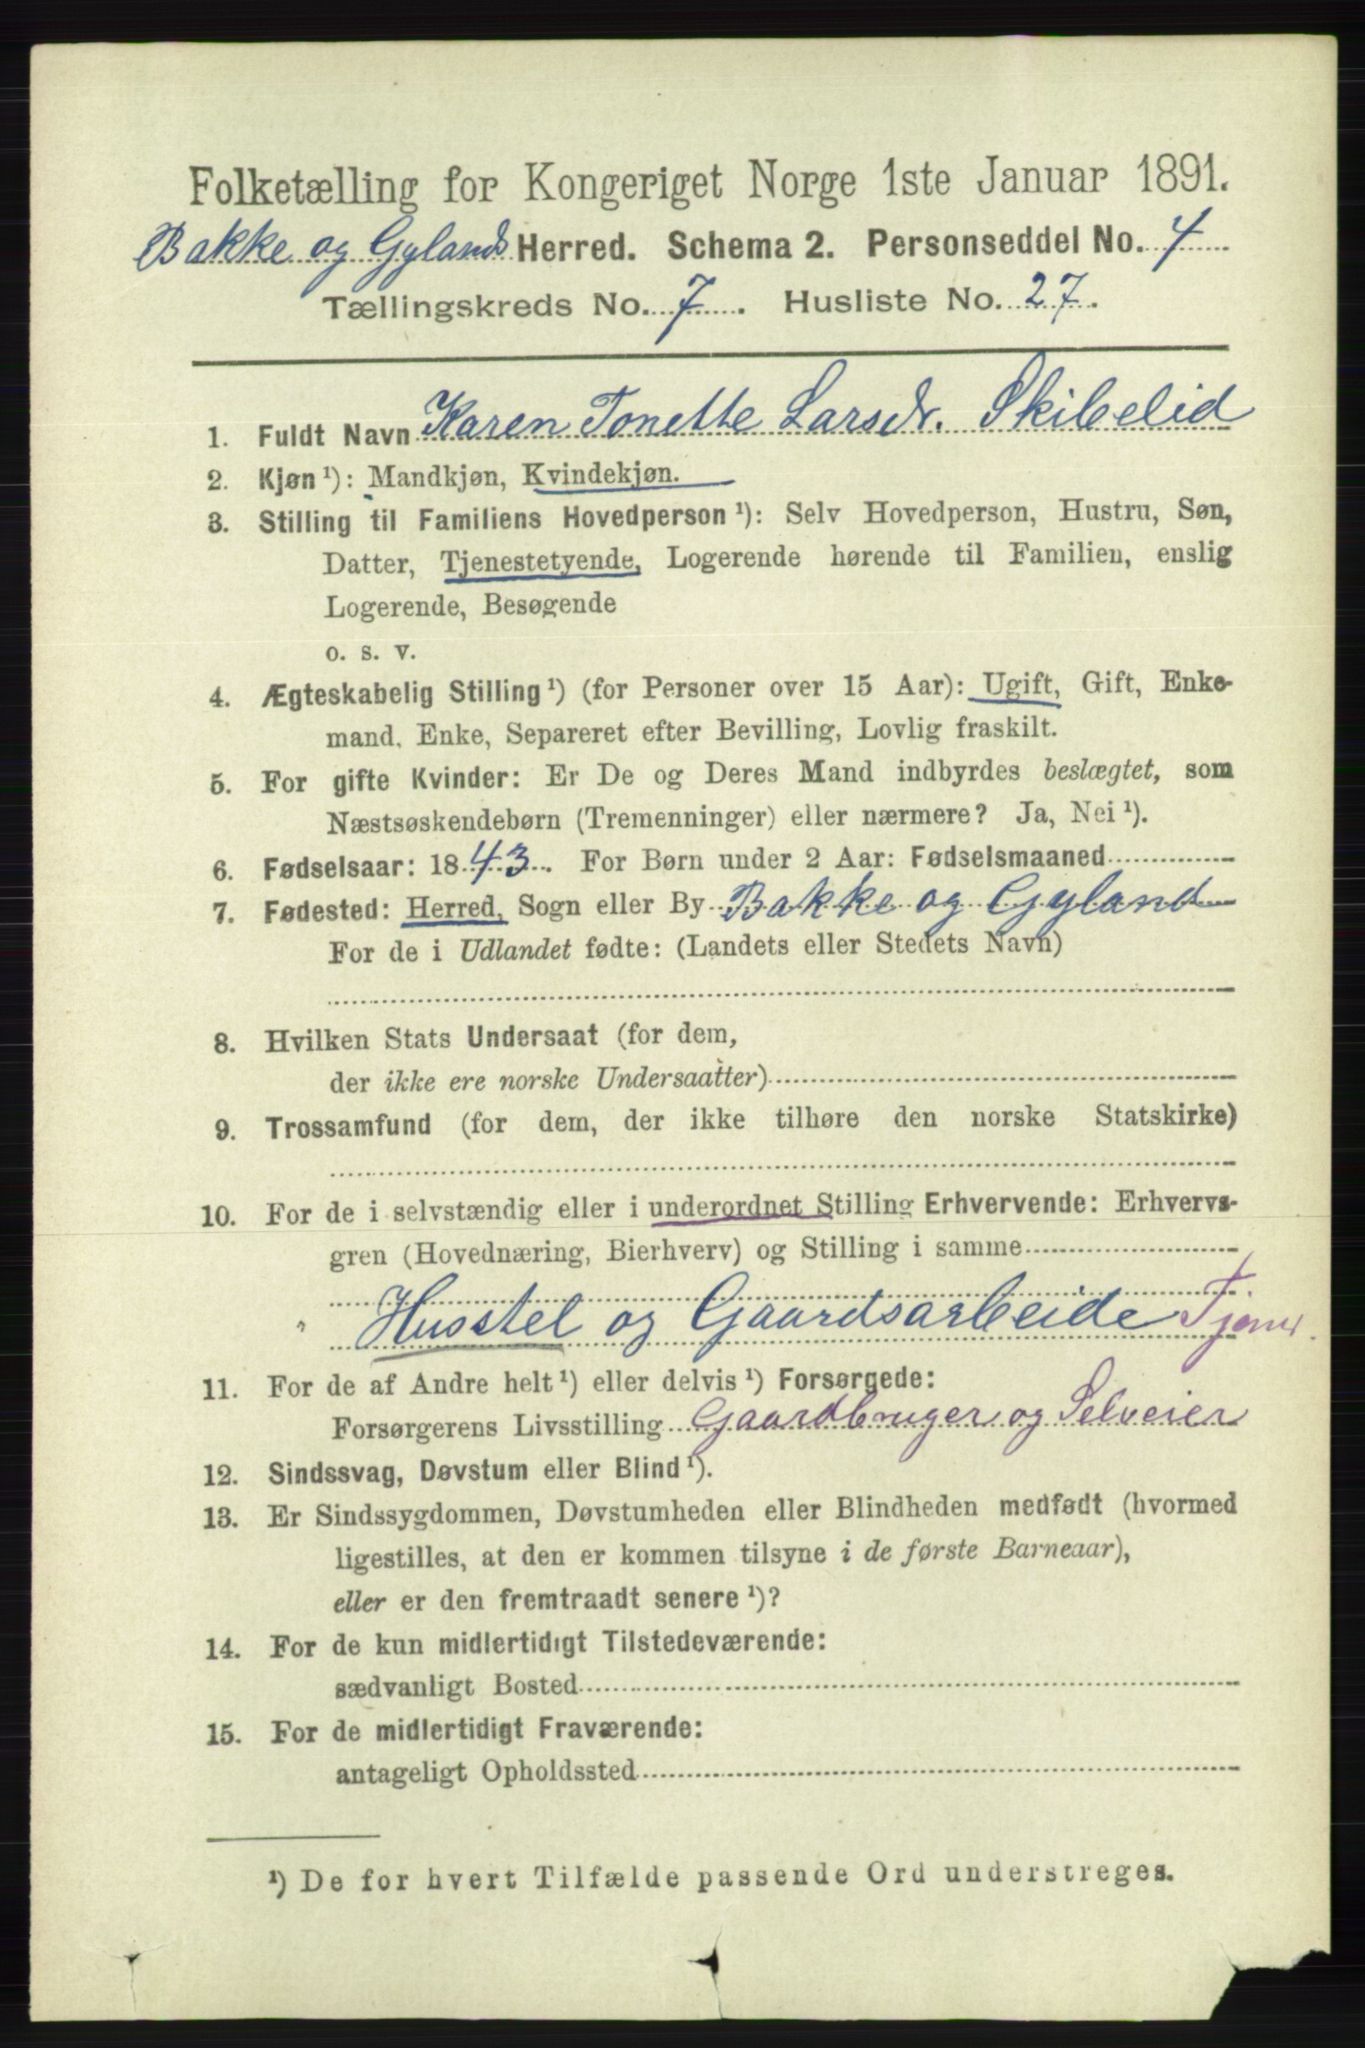 Folketælling for Kongeriget Norge 1ste Januar 1891.
Bakke og Gylands Herred. Schema 2. Personseddel No. 4
Tællingskreds No. 7. Husliste No. 27.
1. Fuldt Navn Karen Tonette Larsdr. Skibelid
2. Kjøn ¹): Mandkjøn, Kvindekjøn.
3. Stilling til Familiens Hovedperson ¹): Selv Hovedperson, Hustru, Søn,
Datter, Tjenestetyende, Logerende hørende til Familien, enslig
Logerende, Besøgende
o. s. v.
4. Ægteskabelig Stilling ¹) (for Personer over 15 Aar): Ugift, Gift, Enke-
mand, Enke, Separeret efter Bevilling, Lovlig fraskilt.
5. For gifte Kvinder: Er De og Deres Mand indbyrdes beslægtet, som
Næstsøskendebørn (Tremenninger) eller nærmere? Ja, Nei ¹).
6. Fødselsaar: 1843. For Børn under 2 Aar: Fødselsmaaned
7. Fødested: Herred, Sogn eller By Bakke og Gyland
For de i Udlandet fødte: (Landets eller Stedets Navn)
8. Hvilken Stats Undersaat (for dem,
der ikke ere norske Undersaatter)
9. Trossamfund (for dem, der ikke tilhøre den norske Statskirke)
10. For de i selvstændig eller i underordnet Stilling Erhvervende: Erhvervs-
gren (Hovednæring, Bierhverv) og Stilling i samme
Husstel og Gaardsarbeide
11. For de af Andre helt ¹) eller delvis ¹) Forsørgede:
Forsørgerens Livsstilling Gaardbruger og Selveier
12. Sindssvag, Døvstum eller Blind ¹).
13. Er Sindssygdommen, Døvstumheden eller Blindheden medfødt (hvormed
ligestilles, at den er kommen tilsyne i de første Barneaar),
eller er den fremtraadt senere ¹)?
14. For de kun midlertidigt Tilstedeværende:
sædvanligt Bosted
15. For de midlertidigt Fraværende:
antageligt Opholdssted
¹) De for hvert Tilfælde passende Ord understreges.